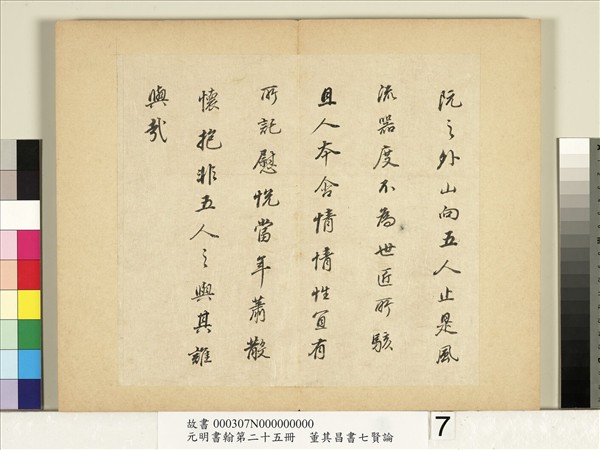 阮之外山向五人止是風
流器度不為世匠所駭
且人本含情情性宜有
所託慰悦當年蕭散
懷抱非五人之與其誰
與哉
故書 000307N000000000
元明書翰第二十五冊 董其昌書七賢論
7